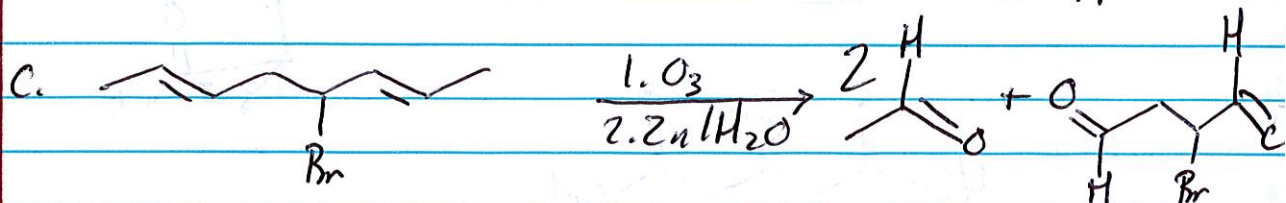 C. Br 1. O3 2. Zn/H2O 2 H O + O H Br H O